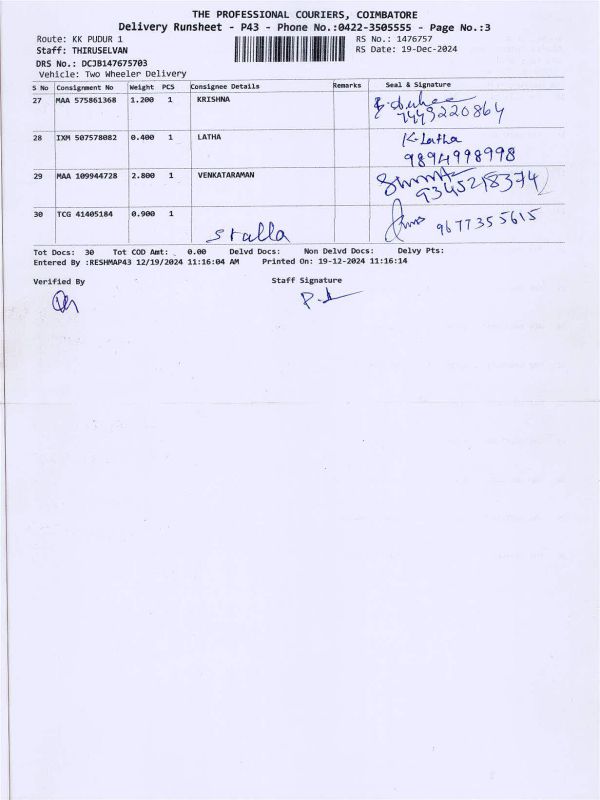 THE PROFESSIONAL COURIERS, COIMBATORE
Delivery Runsheet - P43 - Phone No.:0422-3505555 - Page No.:3
Route: KK PUDUR 1 RS No.: 1476757
Staff: THIRUSELVAN RS Date: 19-Dec-2024
DRS No.: DCJB147675703
Vehicle: Two Wheeler Delivery
S No Consignment No Weight PCS Consignee Details Remarks Seal & Signature
27 MAA 575861368 1.200 1 KRISHNA
7449220864
28 IXM 507578082 0.400 1 LATHA K-Latha
9894998998
29 MAA 109944728 2.800 1 VENKATARAMAN
9345218374
30 TCG 41405184 0.900 1 9677355615
stalla
Tot Docs: 30 Tot COD Amt: 0.00 Delvd Docs: Non Delvd Docs: Delvy Pts:
Entered By :RESHMAP43 12/19/2024 11:16:04 AM Printed On: 19-12-2024 11:16:14
Verified By Staff Signature